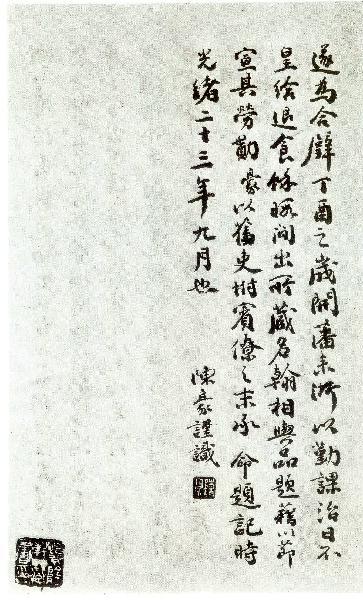 遂為合璧丁酉之歲開藩未浙以勤課治日不
皇給退食餘暇間出所藏名翰相與品題藉以節
宣其勞勩豪以舊吏附賓僚之末承命題記時
光緒二十三年九月也
陳豪謹識